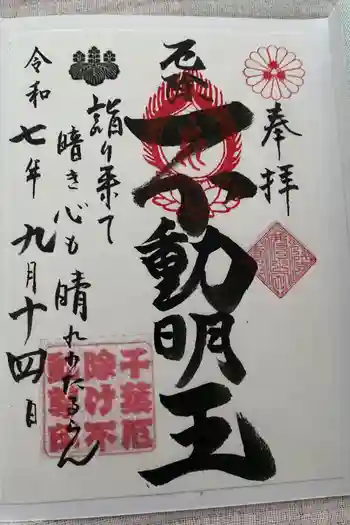 奉拝
厄除
不動明王
詣り来て
暗き心も
晴れわたるらん
令和七年九月十四日
千葉厄
除け不
動尊印